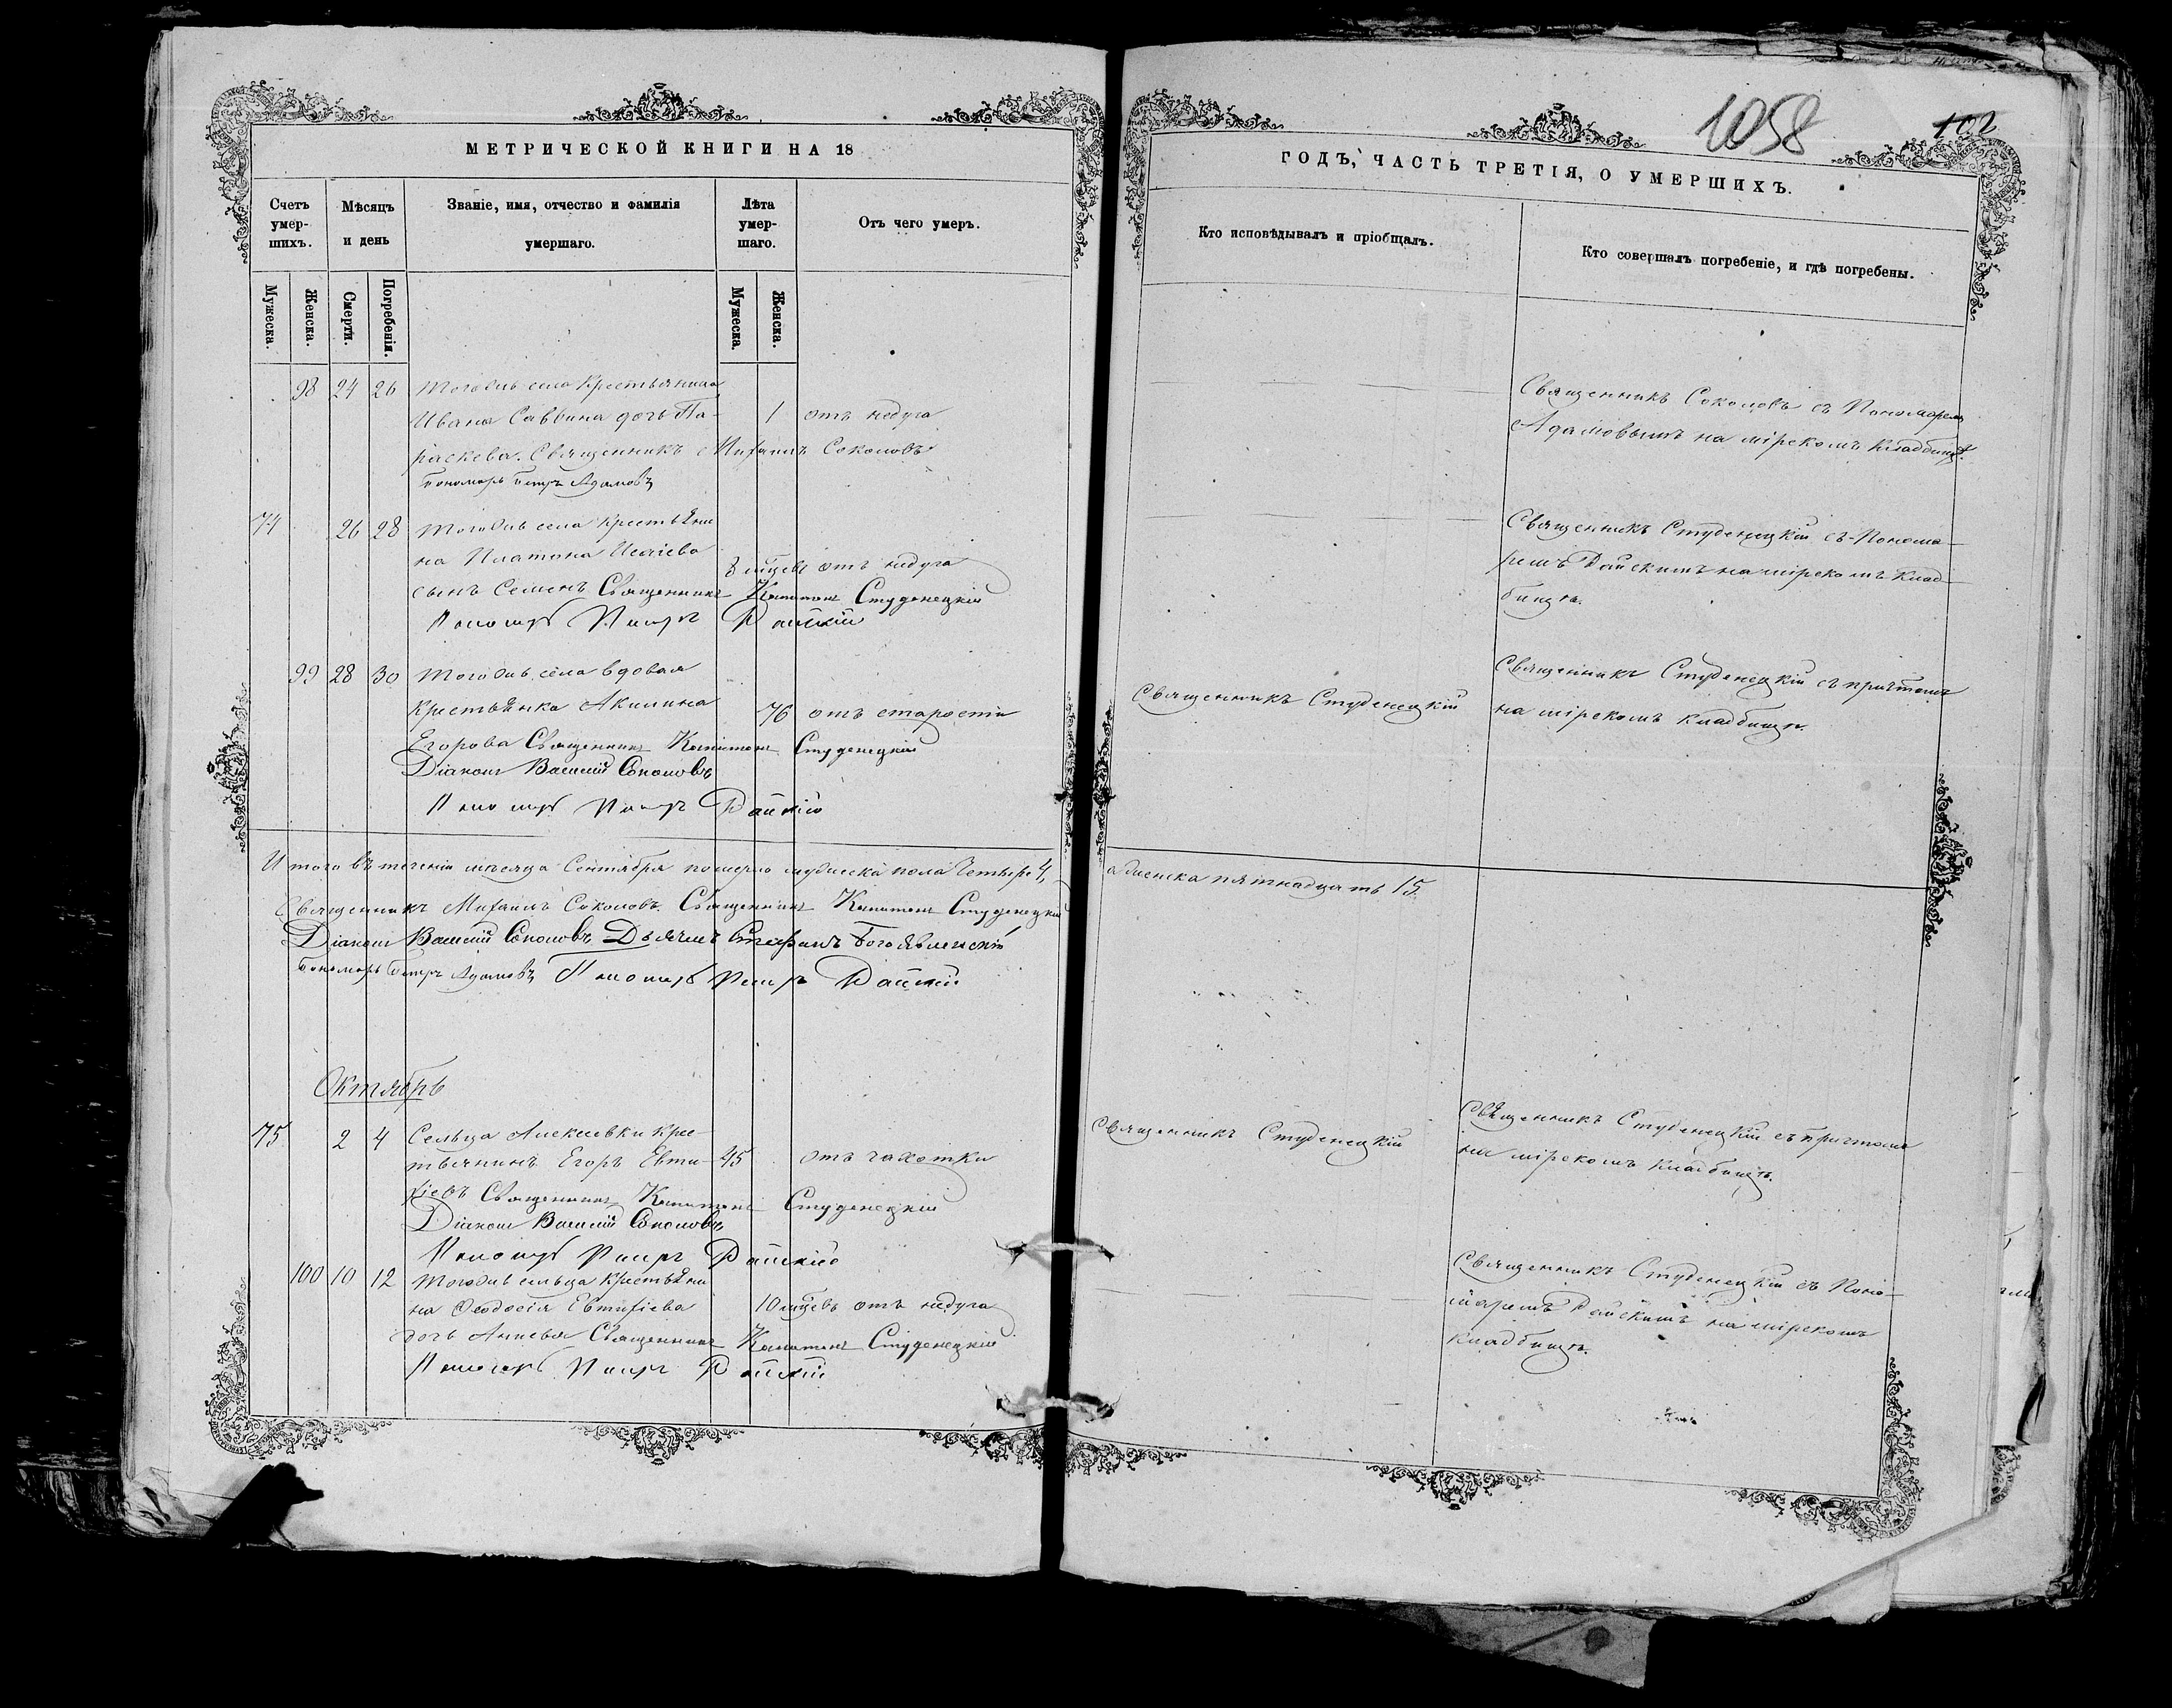 МЕТРИЧЕСКОЙ КНИГИ НА 18
Счетъ умер-шихъ.
Мѣсяцъ и день
Званіе, имя, отчество и фамилія умершаго.
Лѣта умер-шаго.
Отъ чего умеръ.
Мужеска.
Женска.
Смерти.
Погребенія.
Мужеска.
Женска.
98 24 26 Тогожъ села крестьянина
Ивана Саввина дочь Па- 1 отъ недуга
раскева. Священникъ Михаилъ Соколовъ
Пономарь Петръ Адамовъ
74 26 28 Тогожъ села крестьяни
на Платона Исаіева
сынъ Семенъ Священникъ Капитонъ Студенецкій
отъ недуга
Пономарь Петръ Райскій
99 28 30 Тогожъ села вдовая
крестьянка Акилина 76 отъ старости
Егорова Священникъ Капитонъ Студенецкій
Діаконъ Василій Соколовъ
Пономарь Петръ Райскій
Итого въ теченіи мѣсяца Сентября померло мужеска пола Четыре 4,
Священникъ Михаилъ Соколовъ. Священникъ Капитонъ Студенецкій
Діаконъ Василій Соколовъ Дьячекъ Стефанъ Богоявленскій
Пономарь Петръ Адамовъ Пономарь Петръ Райскій
Октябрь
75 2 4 Сельца Алексѣевки кре-
стьянинъ Егоръ Евти- 45 отъ чахотки
хіевъ Священникъ Капитонъ Студенецкій
Діаконъ Василій Соколовъ
Пономарь Петръ Райскій
100 10 12 Тогожъ сельца крестьяни
на Ѳеодосія Евтихіева 10 мѣсяцевъ отъ недуга
дочь Священникъ Капитонъ Студенецкій
Пономарь Петръ Райскій
1058
102
ГОДЪ, ЧАСТЬ ТРЕТІЯ, О УМЕРШИХЪ.
Кто исповѣдывалъ и пріобщалъ.
Кто совершалъ погребеніе, и гдѣ погребены.
Священникъ Соколовъ съ Пономаремъ
Адамовымъ на мірскомъ кладбищѣ.
Священникъ Студенецкій съ Понома-
ремъ Райскимъ на мірскомъ клад-
бищѣ.
Священникъ Студенецкій
Священникъ Студенецкій съ причтомъ
на мірскомъ кладбищѣ.
а женска пятнадцать 15.
Священникъ Студенецкій
Священникъ Студенецкій съ причтомъ
на мірскомъ кладбищѣ.
Священникъ Студенецкій съ Поно-
маремъ Райскимъ на мірскомъ
кладбищѣ.